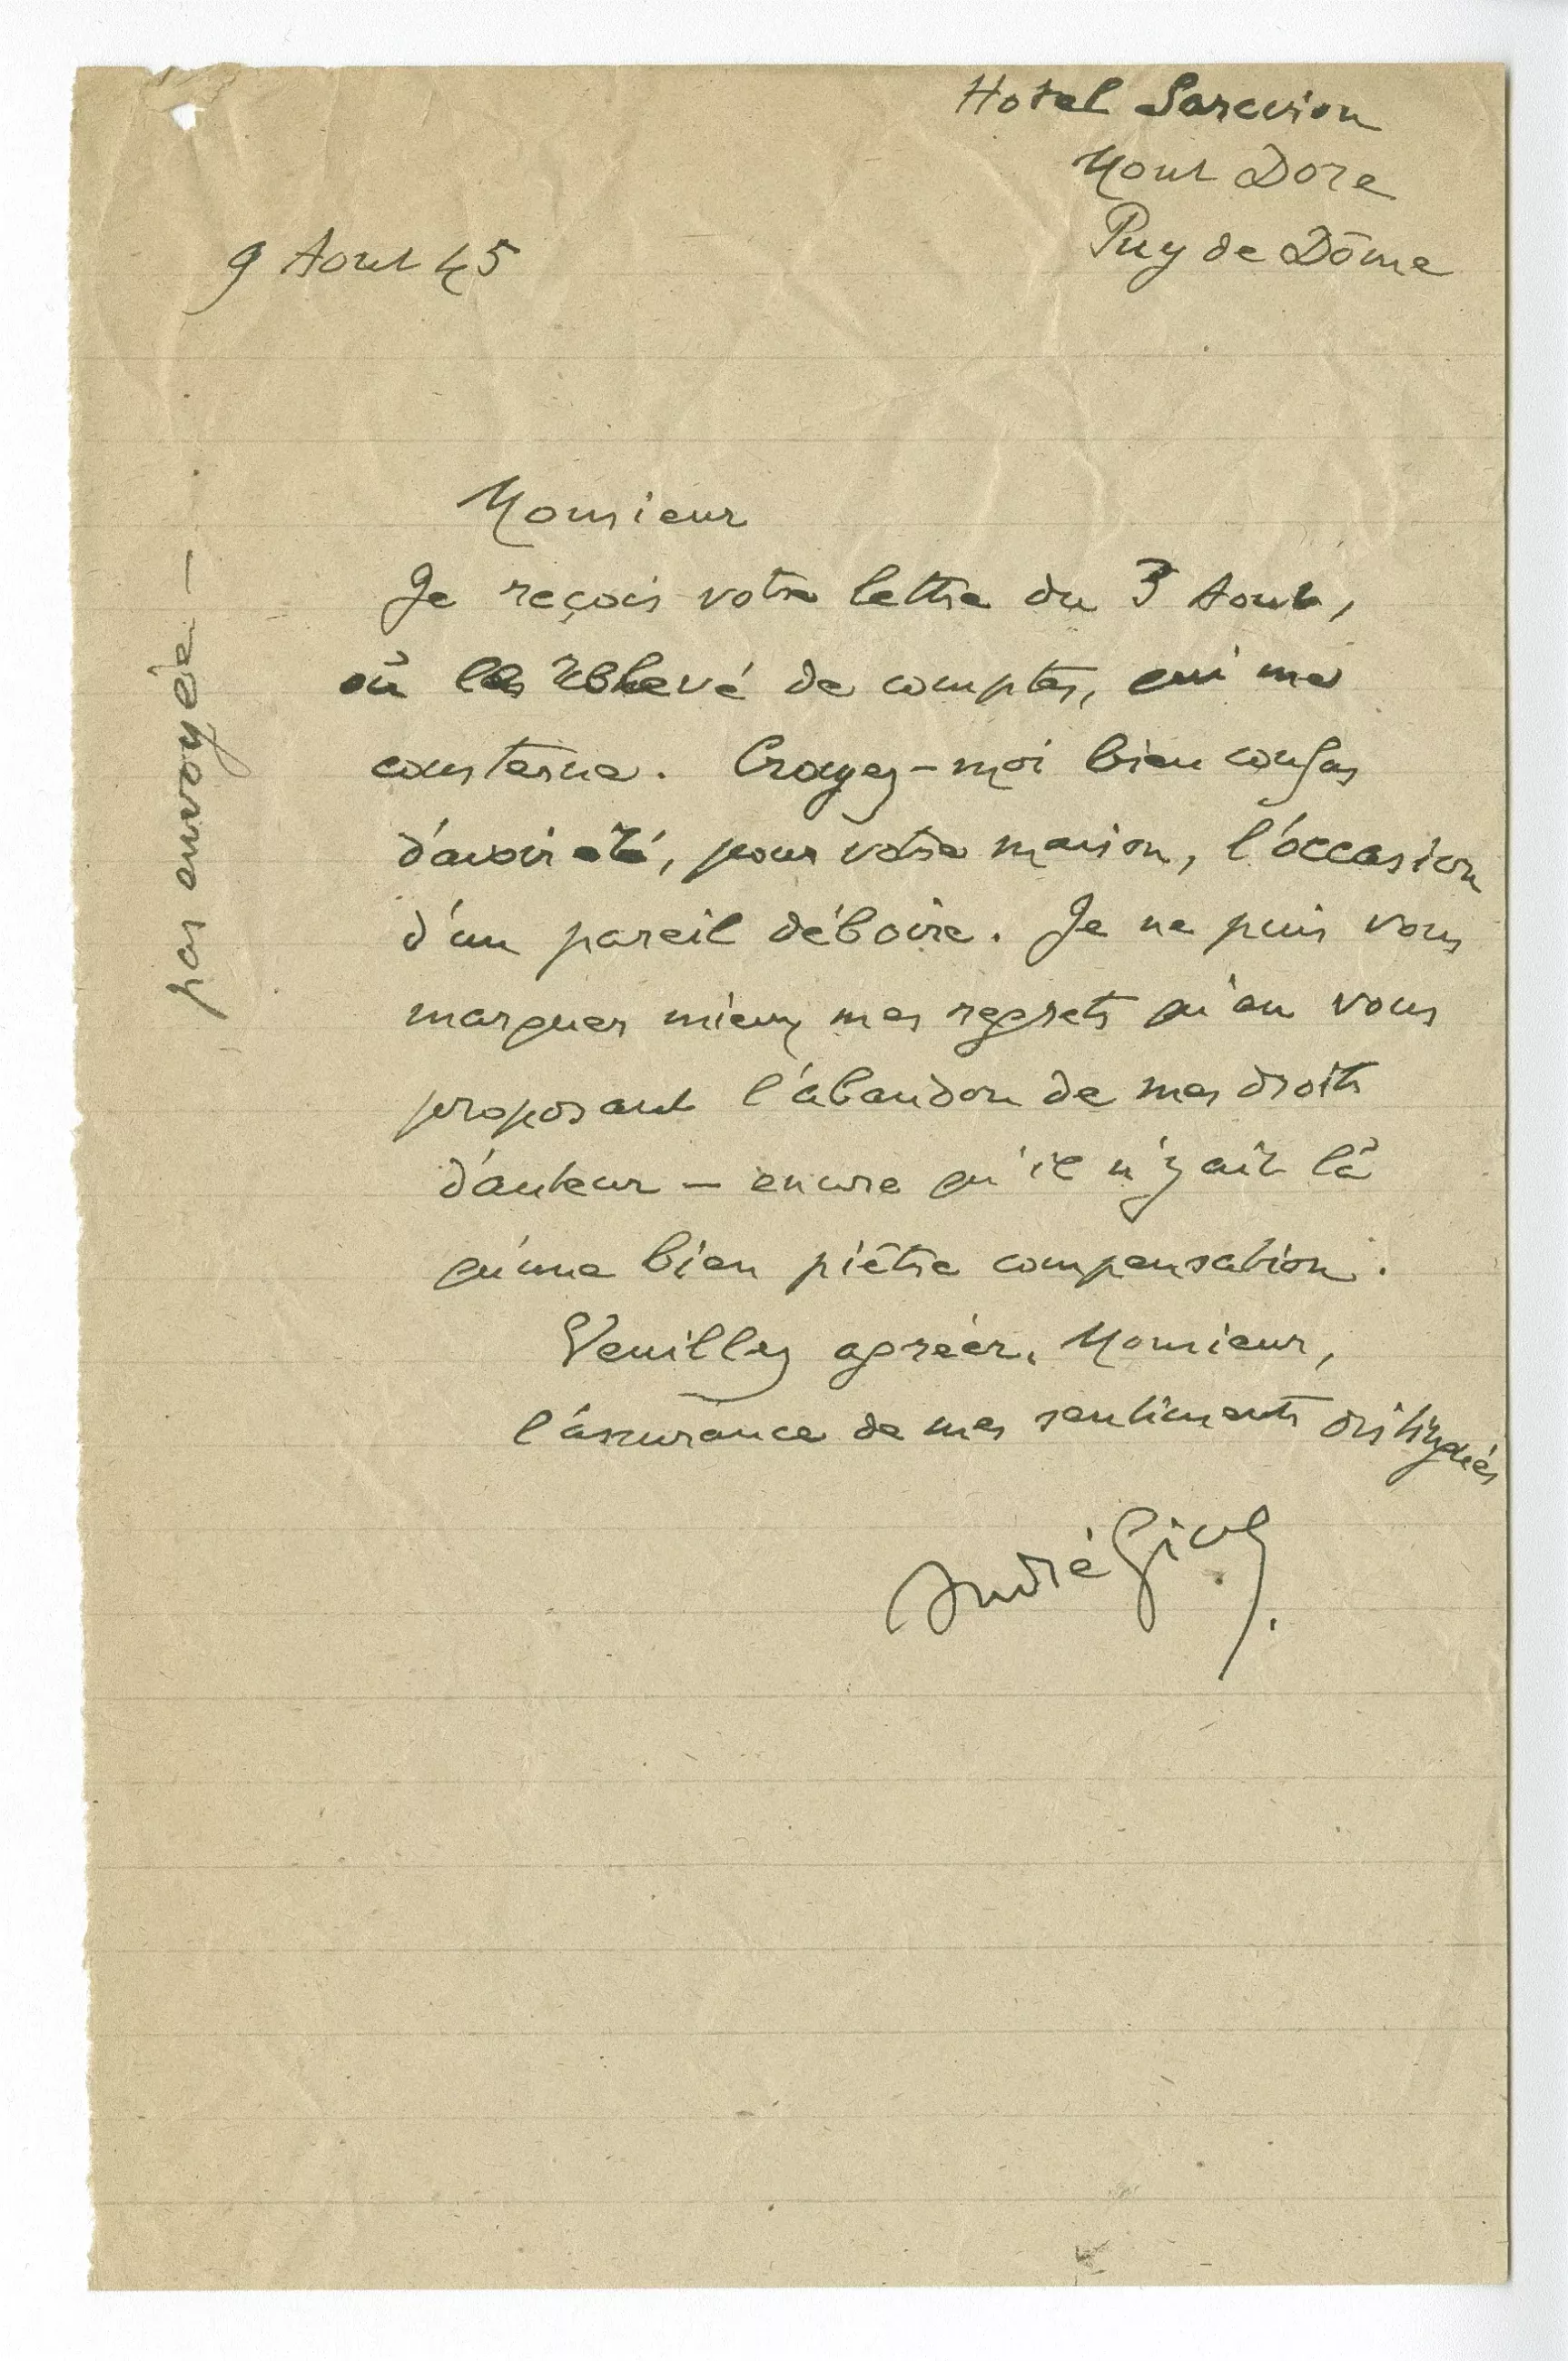 Hotel Sarciron
Mont Dore
Puy de Dôme
9 Aout 45
pas envoyée —
Monsieur
Je reçois votre lettre du 3 Aout,
où le relevé de comptes, qui me
consterne. Croyez-moi bien confus
d'avoir été, pour votre maison, l'occasion
d'un pareil déboire. Je ne puis vous
marquer mieux mes regrets qu'en vous
proposant l'abandon de mes droits
d'auteur — encore qu'il n'y ait là
qu'une bien piètre compensation.
Veuillez agréer, Monsieur,
l'assurance de mes sentiments distingués
André Gide